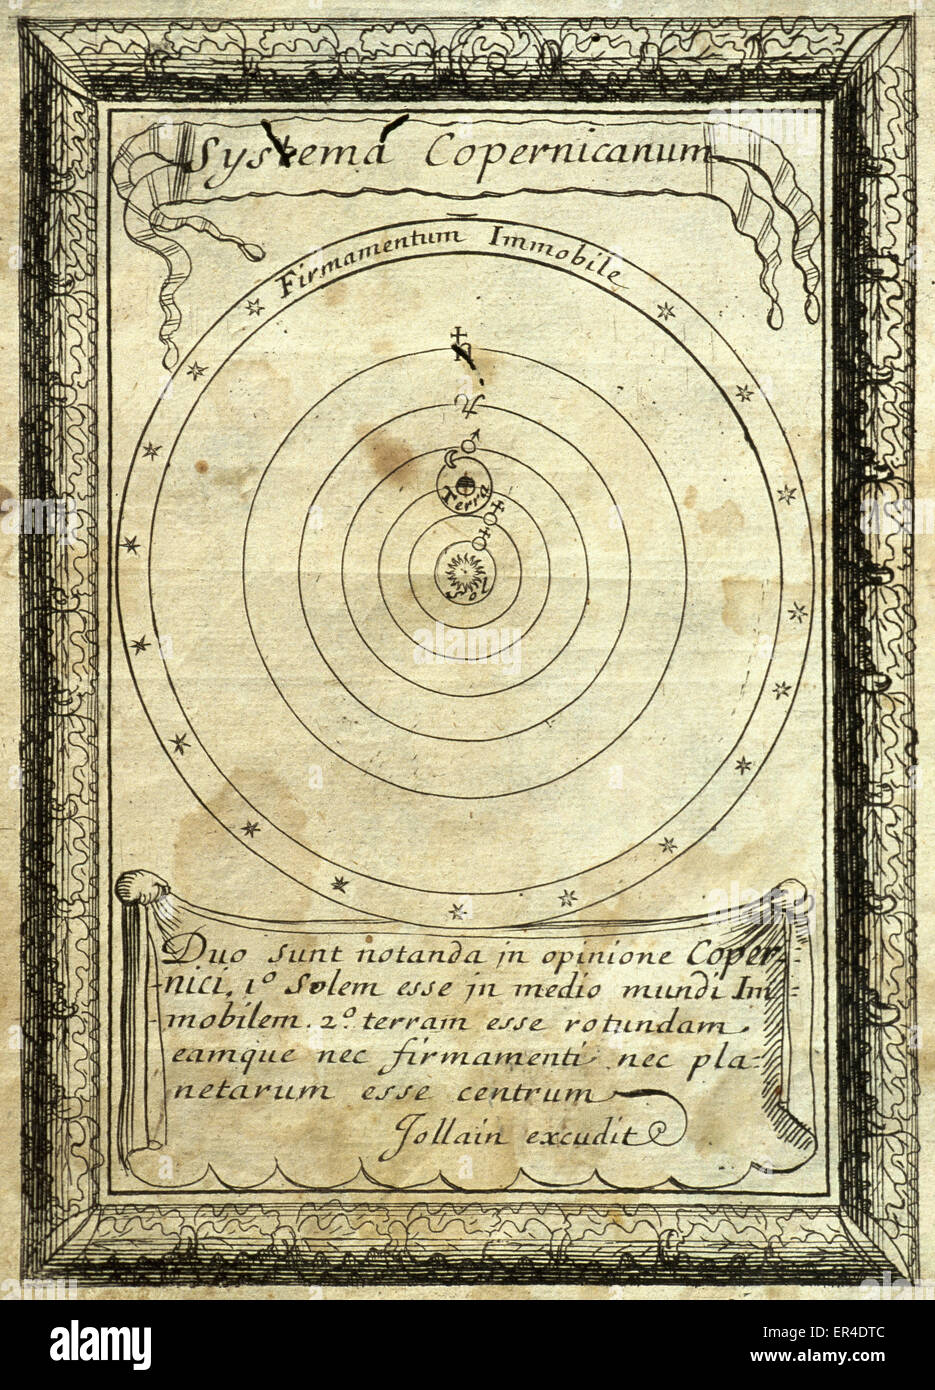 Systema Copernicanum
Firmamentum Immobile
♄
♃
♂
☾
Terra
♀
☿
Sol
Duo sunt notanda in opinione Coper-
nici, 1º Solem esse in medio mundi Im=
mobilem. 2º. terram esse rotundam
eamque nec firmamenti nec pla=
netarum esse centrum
Jollain excudit
alamy
a
alamy stock photo
ER4DTC
www.alamy.com